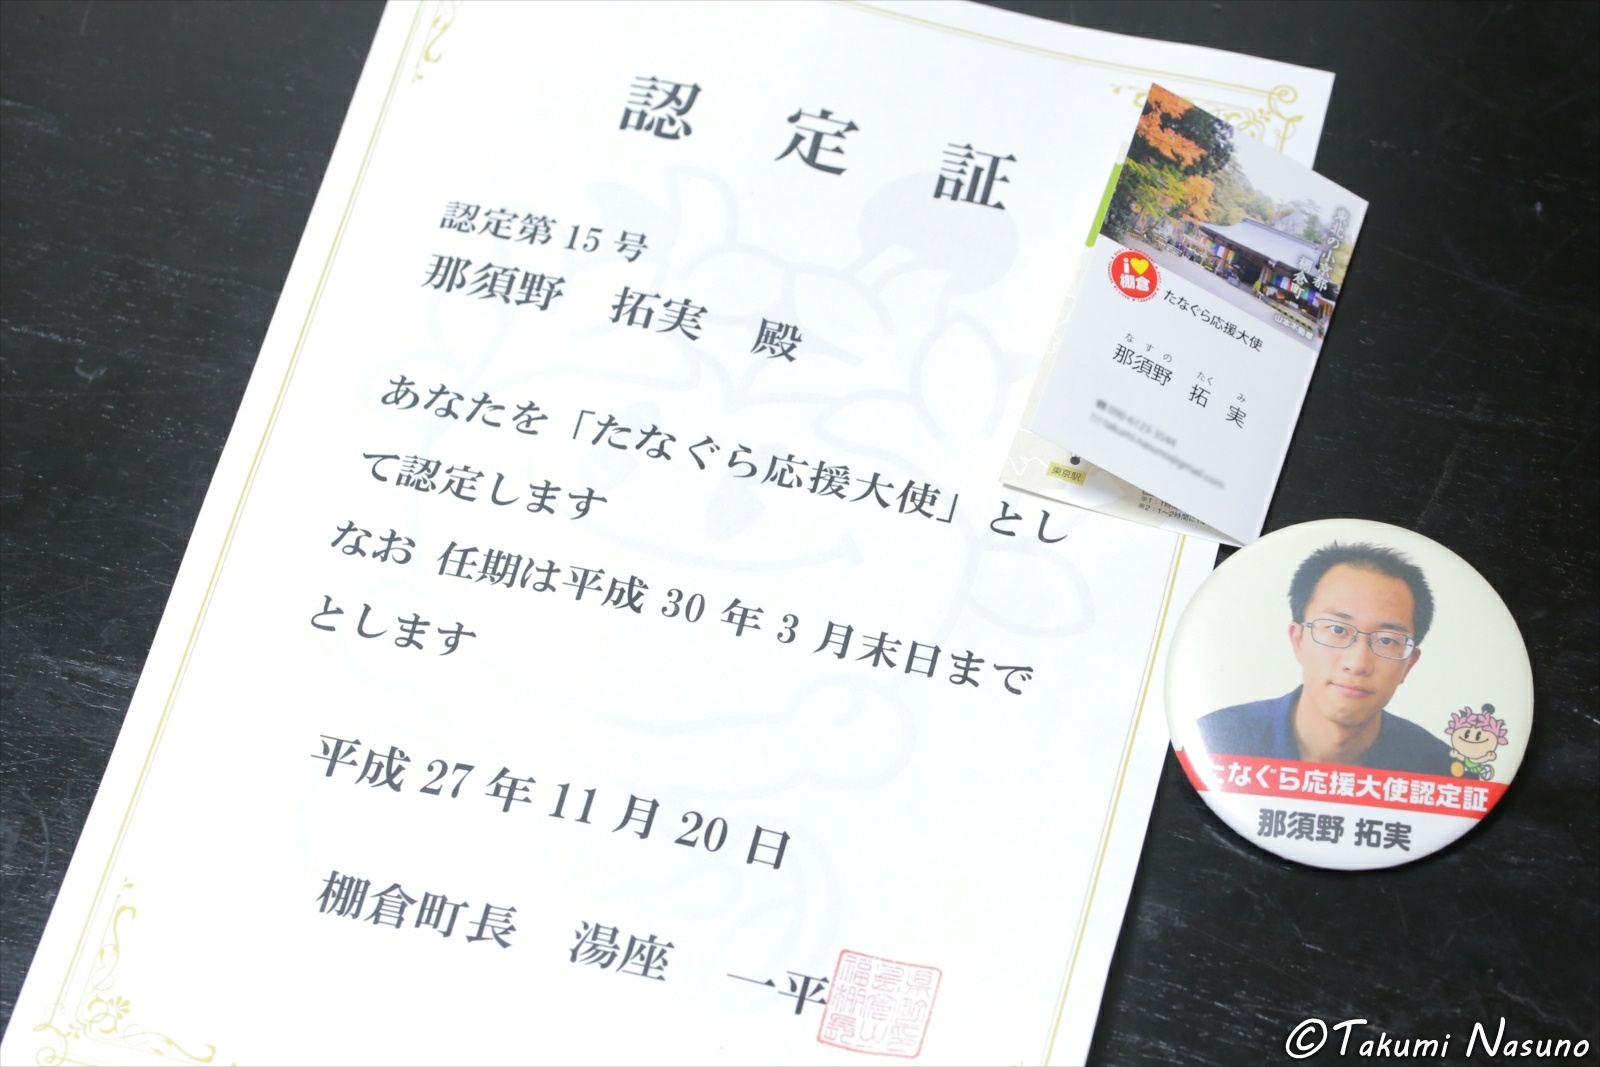 認定証
認定第 15 号
那須野 拓実 殿
あなたを「たなぐら応援大使」とし
て認定します
なお 任期は平成 30 年 3 月末日まで
とします
平成 27 年 11 月 20 日
棚倉町長 湯座 一平
東北の小京都
棚倉町
i
棚倉
たなぐら応援大使
なすの たくみ
那須野 拓実
東京駅
たなぐら応援大使認定証
那須野 拓実
©Takumi Nasuno